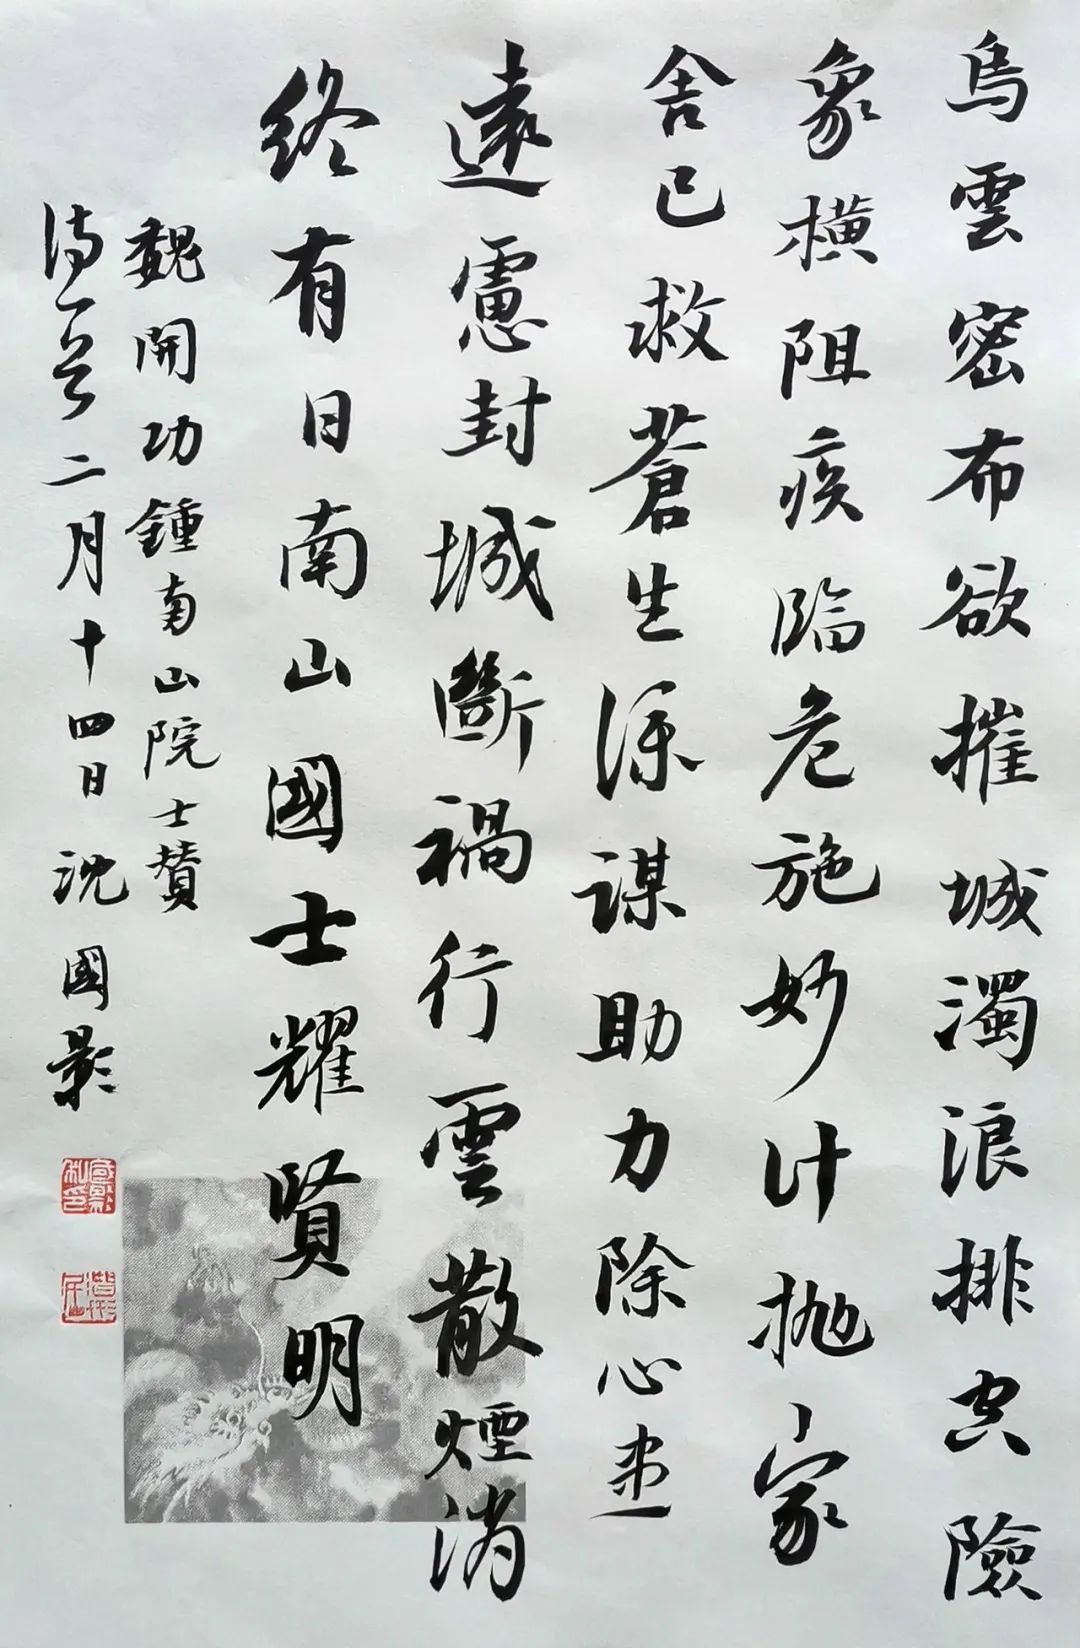 烏雲密布欲摧城濁浪排空險
象橫阻疾臨危施妙計拋家
舍己救蒼生深謀助力除心患
遠慮封城斷禍行雲散煙消
終有日南山國士耀賢明
魏開功鍾南山院士贊
詩一首二月十四日沈國影
國影私印